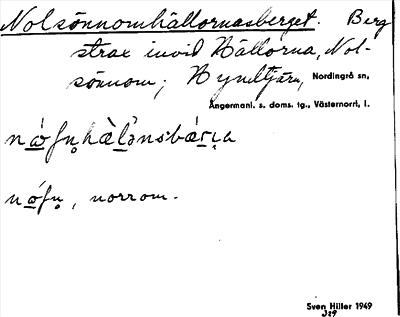 Nolsönnomhällornasberget. Berg
strax invid Hällorna, Nol-
sönnom; Hyndtjärn, Nordingrå sn,
Ångermanl. s. doms. tg., Västernorrl. l.
norrom.
Sven Hiller 1949